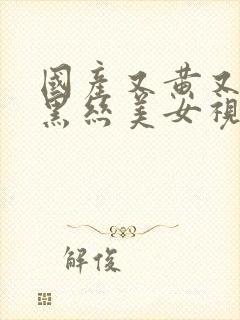 國產又黃又
黑絲美女視
解俊